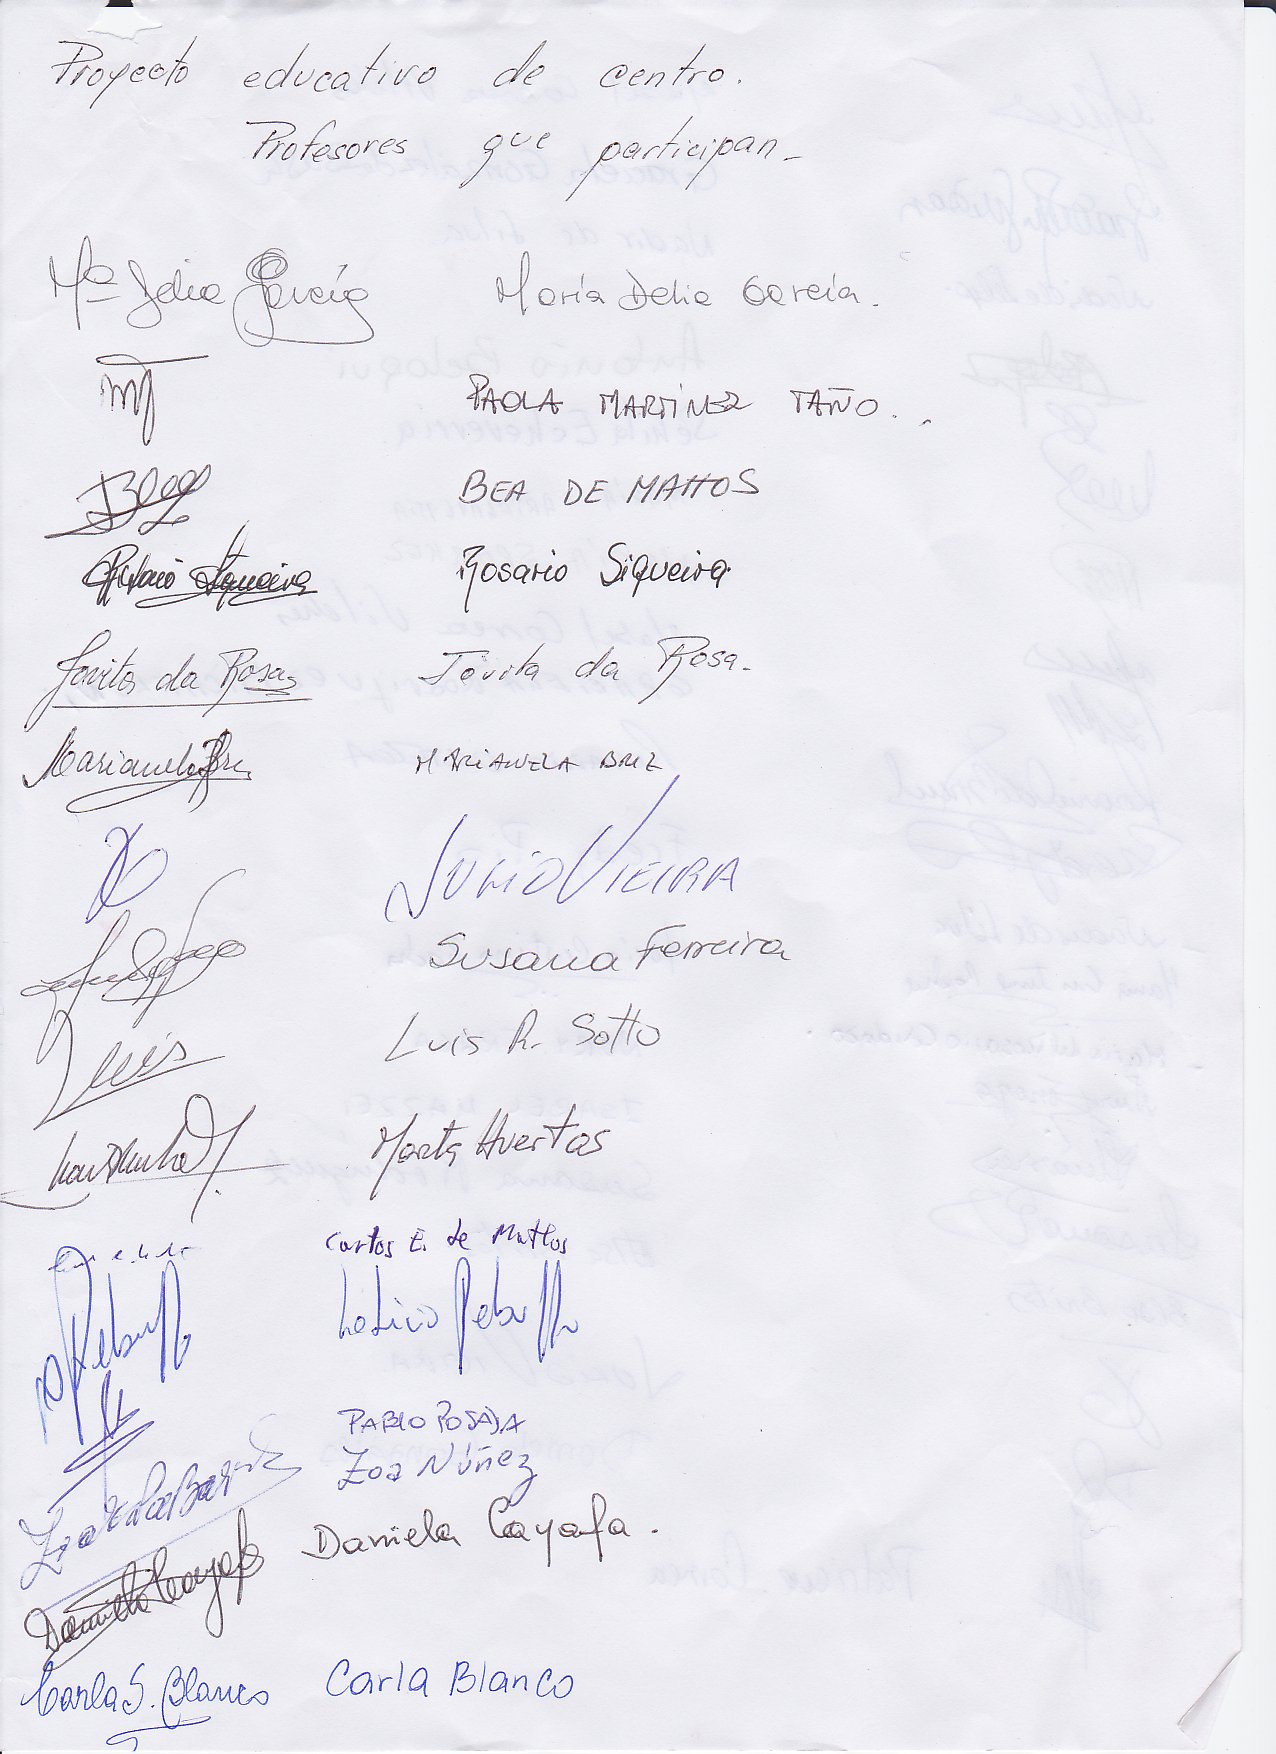 Proyecto educativo de centro.
Profesores que participan_
Mª Delia García María Delia García.
PAOLA MARTÍNEZ TAÑO.
BEA DE MATTOS
Rosario Siqueira Rosario Siqueira
Jovita da Rosa Jovita da Rosa.
Marianela Briz MARIANELA BRIZ
JULIO VIEIRA
Susana Ferreira
Luis Luis R. Sotto
Marta Huertas
Carlos E. de Mattos
Leticia Rebuffo
PABLO POSADA
Zoa Núñez
Daniela Cayafa Daniela Cayafa.
Carla S. Blanco Carla Blanco